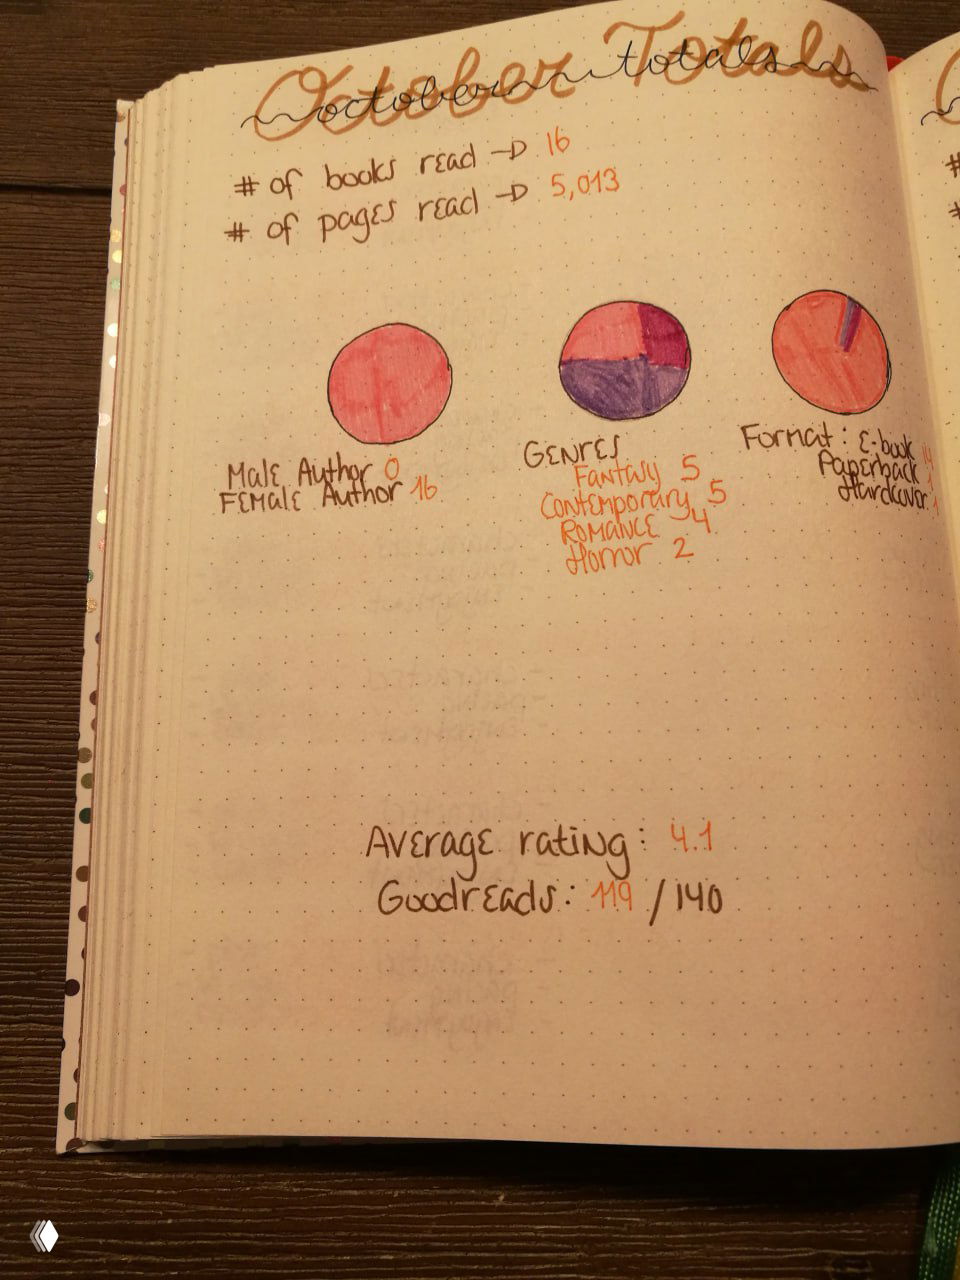 October Totals
october totals
# of books read → 16
# of pages read → 5,013
Male Author 0
Female Author 16
Genres
Fantasy 5
Contemporary 5
Romance 4
Horror 2
Format: E-book 14
Paperback 1
Hardcover 1
Average rating: 4.1
Goodreads: 119 / 140
#
#